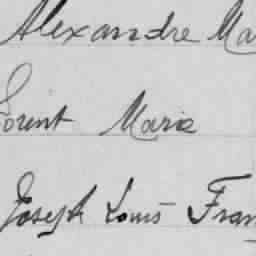 Alexandre Ma
Lorint Marie
Joseph Louis Fran